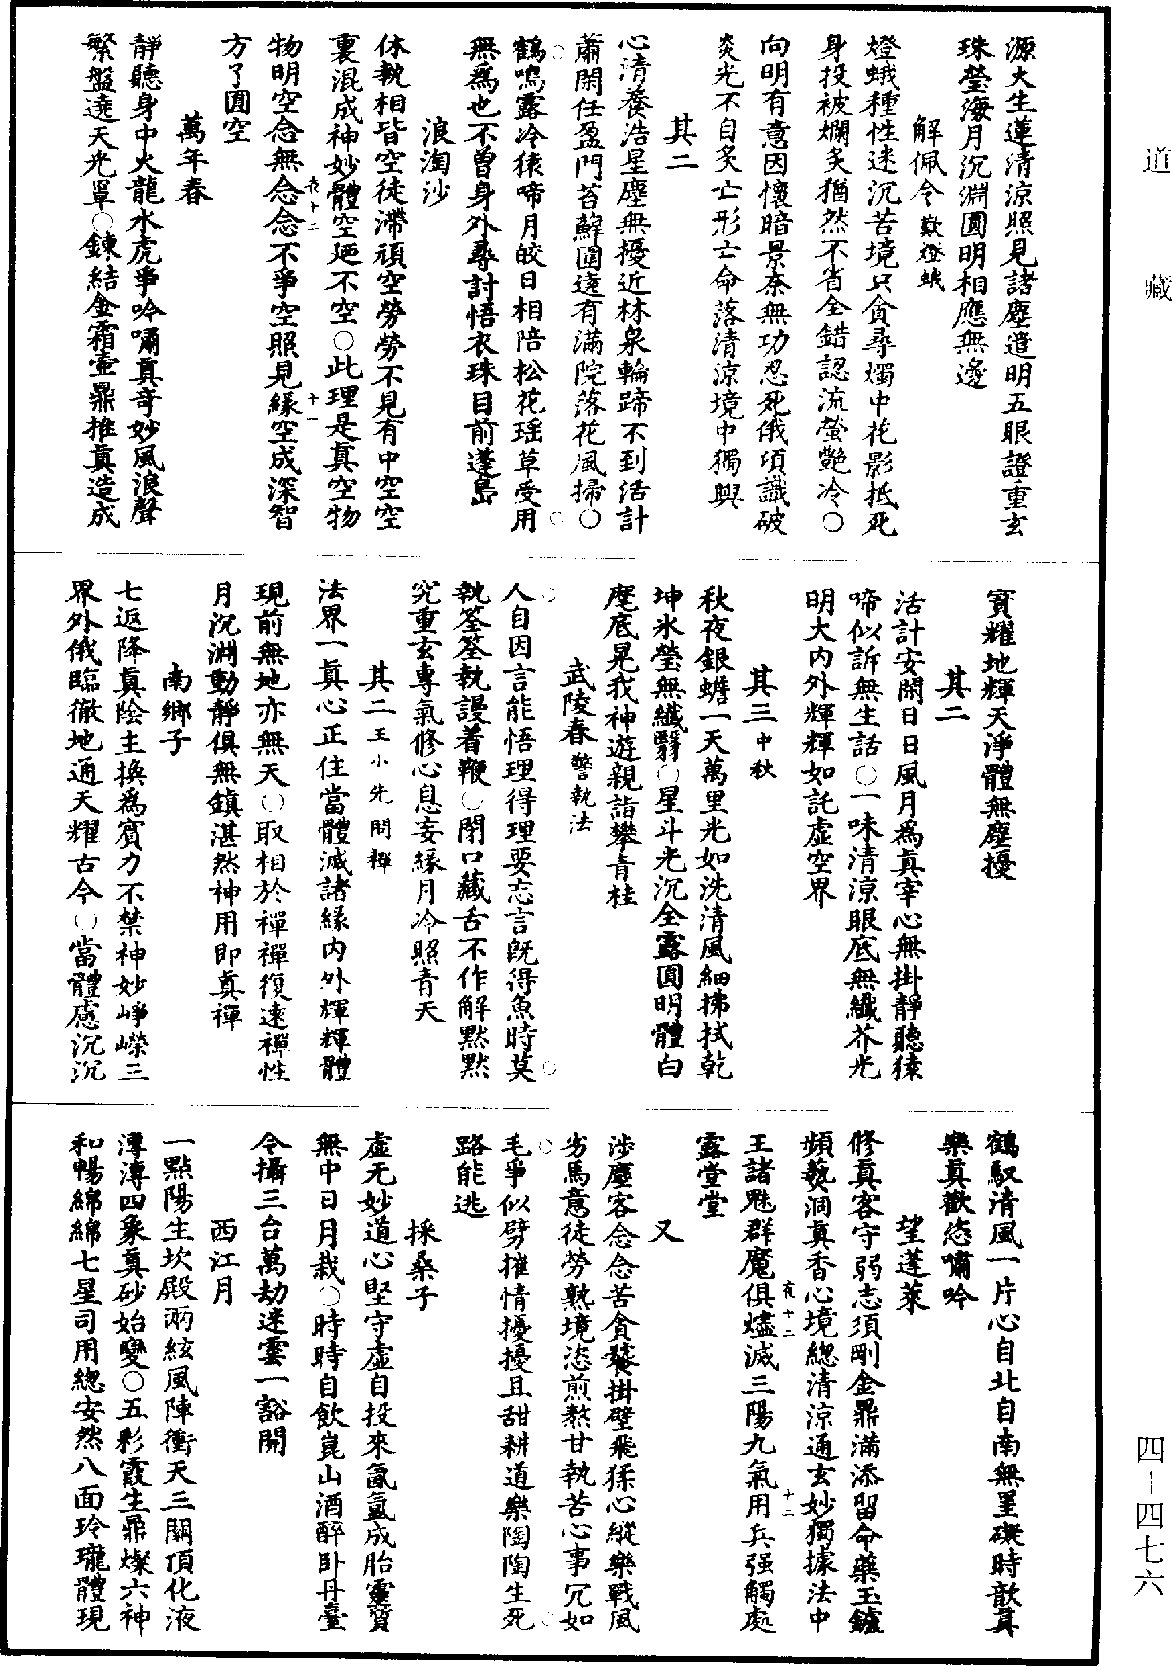 道藏
四－四七六
源大生蓮清涼照見諸塵遣明五眼證重玄
珠瑩海月沉淵圓明相應無邊
解佩令歎燈蛾
燈蛾種性迷沉苦境只貪尋燭中花影抵死
身投被爛炙猶然不省全錯認流螢艷冷○
向明有意因懷暗景柰無功忍死俄頃識破
炎光不自炙亡形亡命落清涼境中獨興
其二
心清養浩星塵無擾近林泉輪蹄不到活計
蕭閑任盈門苔蘚圍遶有滿院落花風掃○
鶴鳴露冷猿啼月皎日相陪松花瑶草受用
無爲也不曾身外尋討悟衣珠目前蓬島
浪淘沙
体執相皆空徒滯頑空勞勞不見有中空空
裏混成神妙體空廼不空○此理是真空物
夜十二
十一
物明空念無念念不爭空照見緣空成深智
方了圓空
萬年春
靜聽身中火龍水虎爭吟嘯真奇妙風浪聲
繁盤遶天光罩○鍊結金霜壺鼎推真造成
寳耀地輝天淨體無塵擾
其二
活計安閑日日風月爲真宰心無掛靜聽猿
啼似訴無生話○一味清涼眼底無纖芥光
明大内外輝輝如託虛空界
其三中秋
秋夜銀蟾一天萬里光如洗清風細拂拭乾
坤氷瑩無纖翳○星斗光沉全露圓明體白
麾底晃我神遊親詣攀青桂
武陵春警執法
人自因言能悟理得理要忘言旣得魚時莫
執筌筌執謾着鞭○閉口藏舌不作解黙黙
究重玄專氣修心息妄緣月冷照青天
其二王小先問禪
法界一真心正住當體滅諸緣内外輝輝體
現前無地亦無天○取相於禪禪復遠禪性
月沉淵動靜俱無鎮湛然神用即真禪
南鄉子
七返降真陰主換爲賓力不禁神妙崢嶸三
界外俄臨徹地通天耀古今○當體慮沉沉
鶴馭清風一片心自北自南無罣礙時歆真
樂真歡恣嘯吟
望蓬萊
修真客守弱志須剛金鼎滿添留命藥玉鑪
頻爇洞真香心境總清涼通玄妙獨據法中
夜十二
十二
王諸魁群魔俱燼滅三陽九氣用兵强觸處
露堂堂
又
涉塵客念念苦貪饕掛壁飛猱心縱樂戰風
劣馬意徒勞熟境恣煎熬甘執苦心事冗如
毛爭似劈摧情擾擾且甜耕道樂陶陶生死
路能逃
採桑子
虛无妙道心堅守虛自投來氤氳成胎靈質
無中日月栽○時時自飲崑山酒醉卧丹臺
令攝三台萬劫迷雲一豁開
西江月
一點陽生坎殿兩絃風陣衝天三關頂化液
漙漙四象真砂始變○五彩霞生鼎燦六神
和暢綿綿七星司用總安然八面玲瓏體現